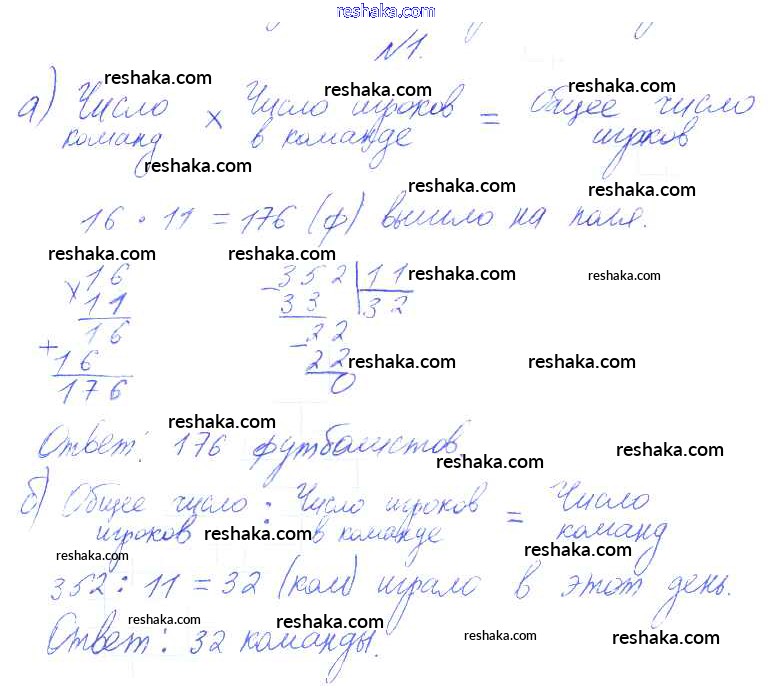 reshaka.com
№1.
reshaka.com reshaka.com reshaka.com
а) Число команд × Число игроков в команде = Общее число игроков
reshaka.com reshaka.com reshaka.com
16 · 11 = 176 (ф) вышло на поля.
reshaka.com reshaka.com reshaka.com reshaka.com
×16 −352|11
11 33 32
16 −22
+16 22
176 0
reshaka.com reshaka.com
reshaka.com
Ответ: 176 футболистов
reshaka.com reshaka.com
б) Общее число игроков : Число игроков в команде = Число команд
reshaka.com reshaka.com reshaka.com
352 : 11 = 32 (ком) играло в этот день.
reshaka.com reshaka.com reshaka.com reshaka.com
Ответ: 32 команды.